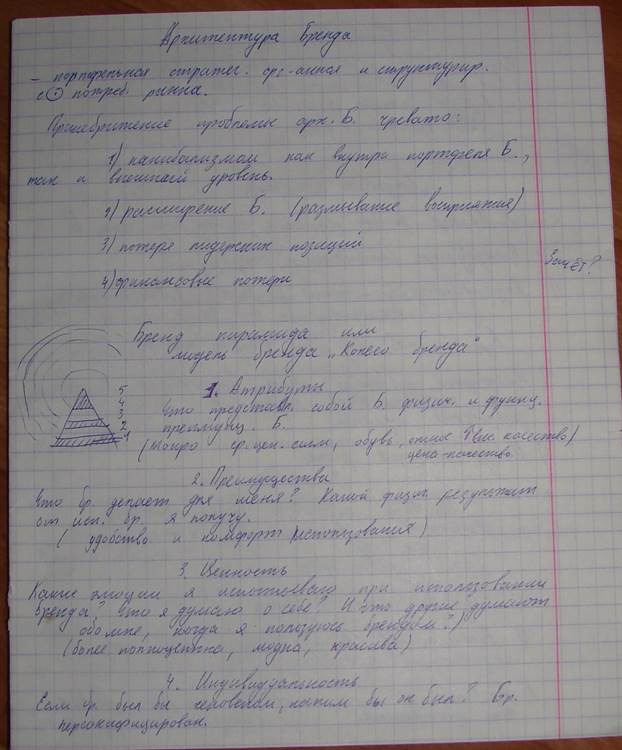 Архитектура Бренда
- портфельная стратег. орг-ания и структурир.
с потреб рынка.
Пренебрижение проблемы арх. Б. чревато:
1) канибализмом как внутри портфеля Б.,
так и внешний уровень.
2) расширение Б. (размывание восприятия)
3) потере лидерских позиций
Зачёт?
4) финансовые потери
Бренд пирамида или
модель бренда „Колесо бренда"
5
4
3
2
1
1. Атрибуты
Что представл. собой Б. физич. и функц.
преимущ. Б.
(ср. цен. обувь, качество)
цена-качество
2. Преимущества
Что бр. делает для меня? Какой физич. результат
от исп. бр. я получу.
(удобство и комфорт использования)
3. Ценность
Какие эмоции я испытываю при использовании
бренда? Что я думаю о себе? И что другие думают
обо мне, когда я пользуюсь брендом?)
(более полноценна, модна, красива)
4. Индивидуальность
Если бр. был бы человеком, каким бы он был? Бр.
персонифицирован.